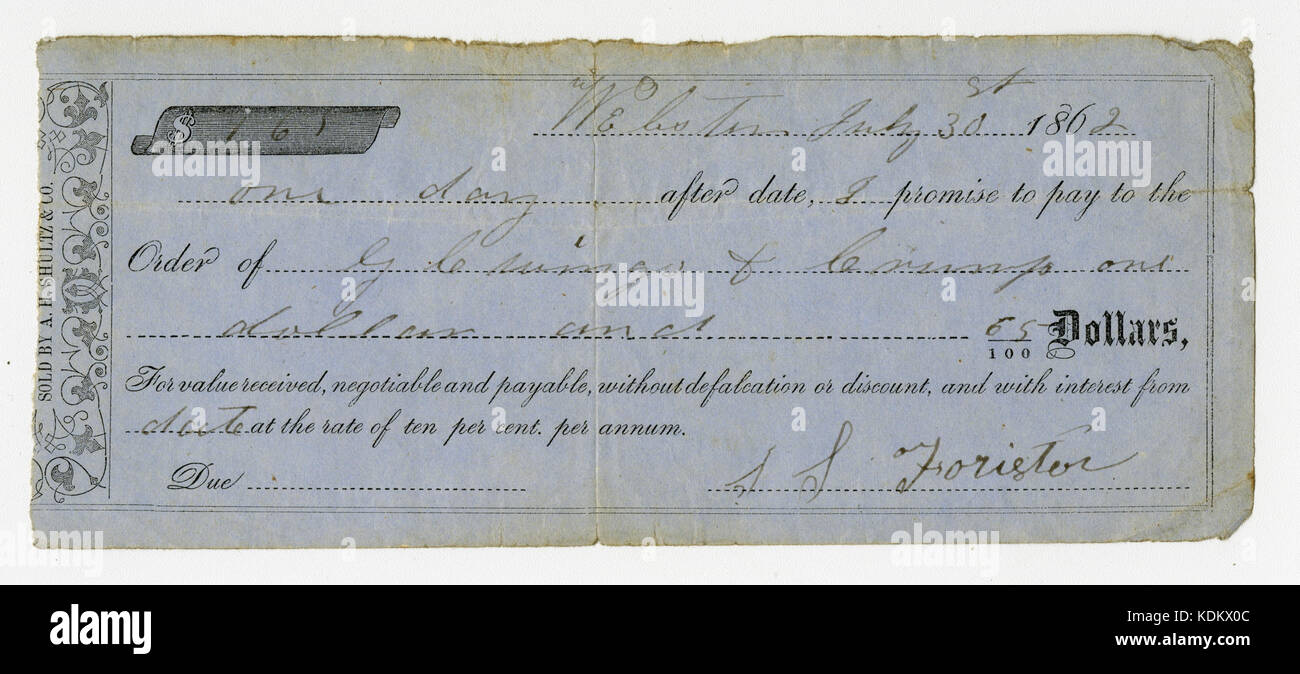 SOLD BY A. H. SHULTZ & CO.
$ 1 65
Webster July 30 st 1862
one day after date, I promise to pay to the
Order of & Crump one
dollar and 65/100 Dollars,
For value received, negotiable and payable, without defalcation or discount, and with interest from
date at the rate of ten per cent. per annum.
Due
S S Forister
alamy
Image ID: KDKX0C
www.alamy.com